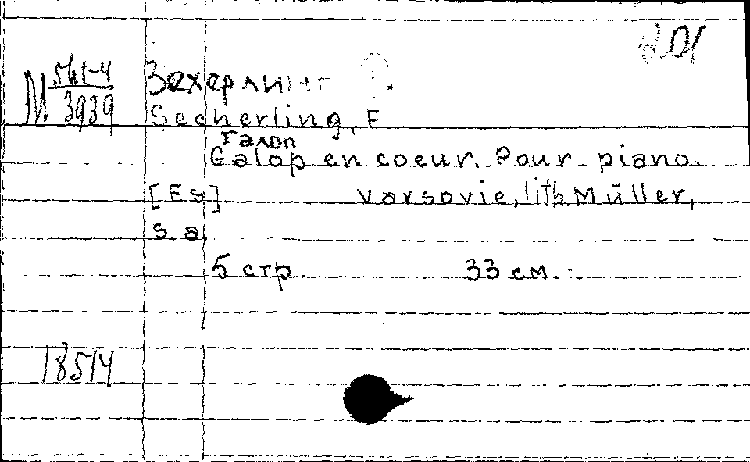 201
М 561-4
3939
Зехерлинг Ф.
Secherling, F
галоп
Galop en coeur. Pour piano.
[Es] Varsovie, lith Müller,
s. a.
5 стр. 33 см.
18514